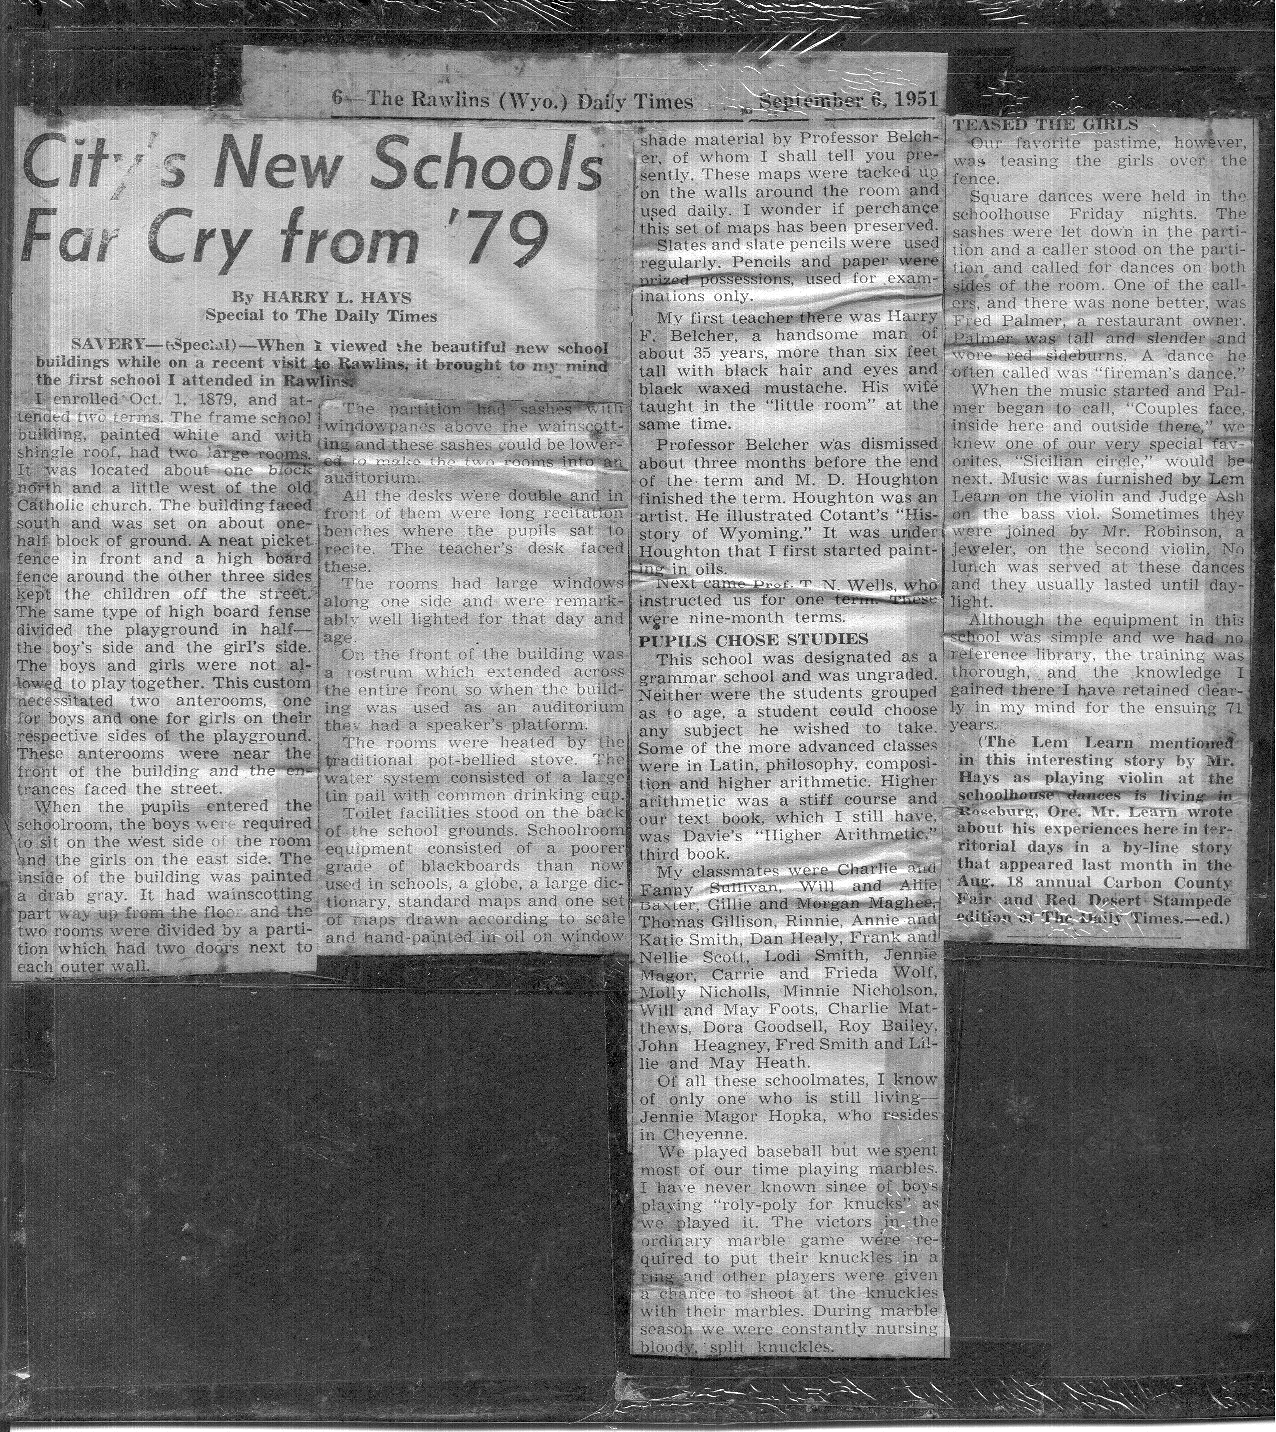 6—The Rawlins (Wyo.) Daily Times September 6, 1951
City's New Schools
Far Cry from '79
By HARRY L. HAYS
Special to The Daily Times
SAVERY—(Special)—When I viewed the beautiful new school
buildings while on a recent visit to Rawlins, it brought to my mind
the first school I attended in Rawlins.
I enrolled Oct. 1, 1879, and at-
tended two terms. The frame school
building, painted white and with
shingle roof, had two large rooms.
It was located about one block
north and a little west of the old
Catholic church. The building faced
south and was set on about one-
half block of ground. A neat picket
fence in front and a high board
fence around the other three sides
kept the children off the street.
The same type of high board fense
divided the playground in half—
the boy's side and the girl's side.
The boys and girls were not al-
lowed to play together. This custom
necessitated two anterooms, one
for boys and one for girls on their
respective sides of the playground.
These anterooms were near the
front of the building and the en-
trances faced the street.
When the pupils entered the
schoolroom, the boys were required
to sit on the west side of the room
and the girls on the east side. The
inside of the building was painted
a drab gray. It had wainscotting
part way up from the floor and the
two rooms were divided by a parti-
tion which had two doors next to
each outer wall.
The partition had sashes with
windowpanes above the wainscott-
ing and these sashes could be lower-
ed to make the two rooms into an
auditorium.
All the desks were double and in
front of them were long recitation
benches where the pupils sat to
recite. The teacher's desk faced
these.
The rooms had large windows
along one side and were remark-
ably well lighted for that day and
age.
On the front of the building was
a rostrum which extended across
the entire front so when the build-
ing was used as an auditorium
they had a speaker's platform.
The rooms were heated by the
traditional pot-bellied stove. The
water system consisted of a large
tin pail with common drinking cup.
Toilet facilities stood on the back
of the school grounds. Schoolroom
equipment consisted of a poorer
grade of blackboards than now
used in schools, a globe, a large dic-
tionary, standard maps and one set
of maps drawn according to scale
and hand-painted in oil on window
shade material by Professor Belch-
er, of whom I shall tell you pre-
sently. These maps were tacked up
on the walls around the room and
used daily. I wonder if perchance
this set of maps has been preserved.
Slates and slate pencils were used
regularly. Pencils and paper were
prized possessions, used for exam-
inations only.
My first teacher there was Harry
F. Belcher, a handsome man of
about 35 years, more than six feet
tall with black hair and eyes and
black waxed mustache. His wife
taught in the "little room" at the
same time.
Professor Belcher was dismissed
about three months before the end
of the term and M. D. Houghton
finished the term. Houghton was an
artist. He illustrated Cotant's "His-
story of Wyoming." It was under
Houghton that I first started paint-
ing in oils.
Next came Prof. T. N. Wells, who
instructed us for one term. These
were nine-month terms.
PUPILS CHOSE STUDIES
This school was designated as a
grammar school and was ungraded.
Neither were the students grouped
as to age, a student could choose
any subject he wished to take.
Some of the more advanced classes
were in Latin, philosophy, composi-
tion and higher arithmetic. Higher
arithmetic was a stiff course and
our text book, which I still have,
was Davie's "Higher Arithmetic,"
third book.
My classmates were Charlie and
Fanny Sullivan, Will and Allie
Baxter, Gillie and Morgan Maghee,
Thomas Gillison, Rinnie, Annie and
Katie Smith, Dan Healy, Frank and
Nellie Scott, Lodi Smith, Jennie
Magor, Carrie and Frieda Wolf,
Molly Nicholls, Minnie Nicholson,
Will and May Foots, Charlie Mat-
thews, Dora Goodsell, Roy Bailey,
John Heagney, Fred Smith and Lil-
lie and May Heath.
Of all these schoolmates, I know
of only one who is still living—
Jennie Magor Hopka, who resides
in Cheyenne.
We played baseball but we spent
most of our time playing marbles.
I have never known since of boys
playing "roly-poly for knucks" as
we played it. The victors in the
ordinary marble game were re-
quired to put their knuckles in a
ring and other players were given
a chance to shoot at the knuckles
with their marbles. During marble
season we were constantly nursing
bloody, split knuckles.
TEASED THE GIRLS
Our favorite pastime, however,
was teasing the girls over the
fence.
Square dances were held in the
schoolhouse Friday nights. The
sashes were let down in the parti-
tion and a caller stood on the parti-
tion and called for dances on both
sides of the room. One of the call-
ers, and there was none better, was
Fred Palmer, a restaurant owner.
Palmer was tall and slender and
wore red sideburns. A dance he
often called was "fireman's dance."
When the music started and Pal-
mer began to call, "Couples face,
inside here and outside there," we
knew one of our very special fav-
orites, "Sicilian circle," would be
next. Music was furnished by Lem
Learn on the violin and Judge Ash
on the bass viol. Sometimes they
were joined by Mr. Robinson, a
jeweler, on the second violin, No
lunch was served at these dances
and they usually lasted until day-
light.
Although the equipment in this
school was simple and we had no
reference library, the training was
thorough, and the knowledge I
gained there I have retained clear-
ly in my mind for the ensuing 71
years.
(The Lem Learn mentioned
in this interesting story by Mr.
Hays as playing violin at the
schoolhouse dances is living in
Roseburg, Ore. Mr. Learn wrote
about his experiences here in ter-
ritorial days in a by-line story
that appeared last month in the
Aug. 18 annual Carbon County
Fair and Red Desert Stampede
edition of The Daily Times.—ed.)